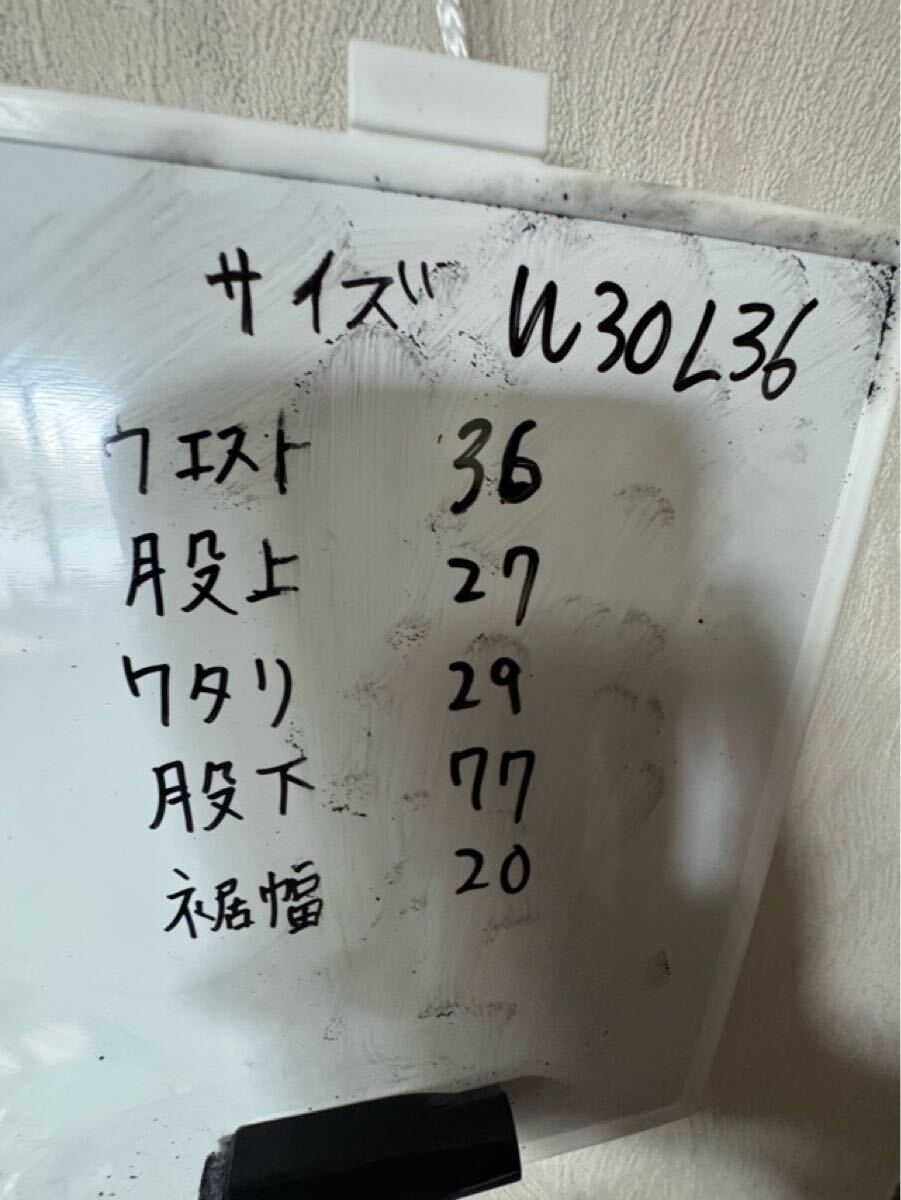 サイズ W30L36
ウエスト 36
股上 27
ワタリ 29
股下 77
裾幅 20